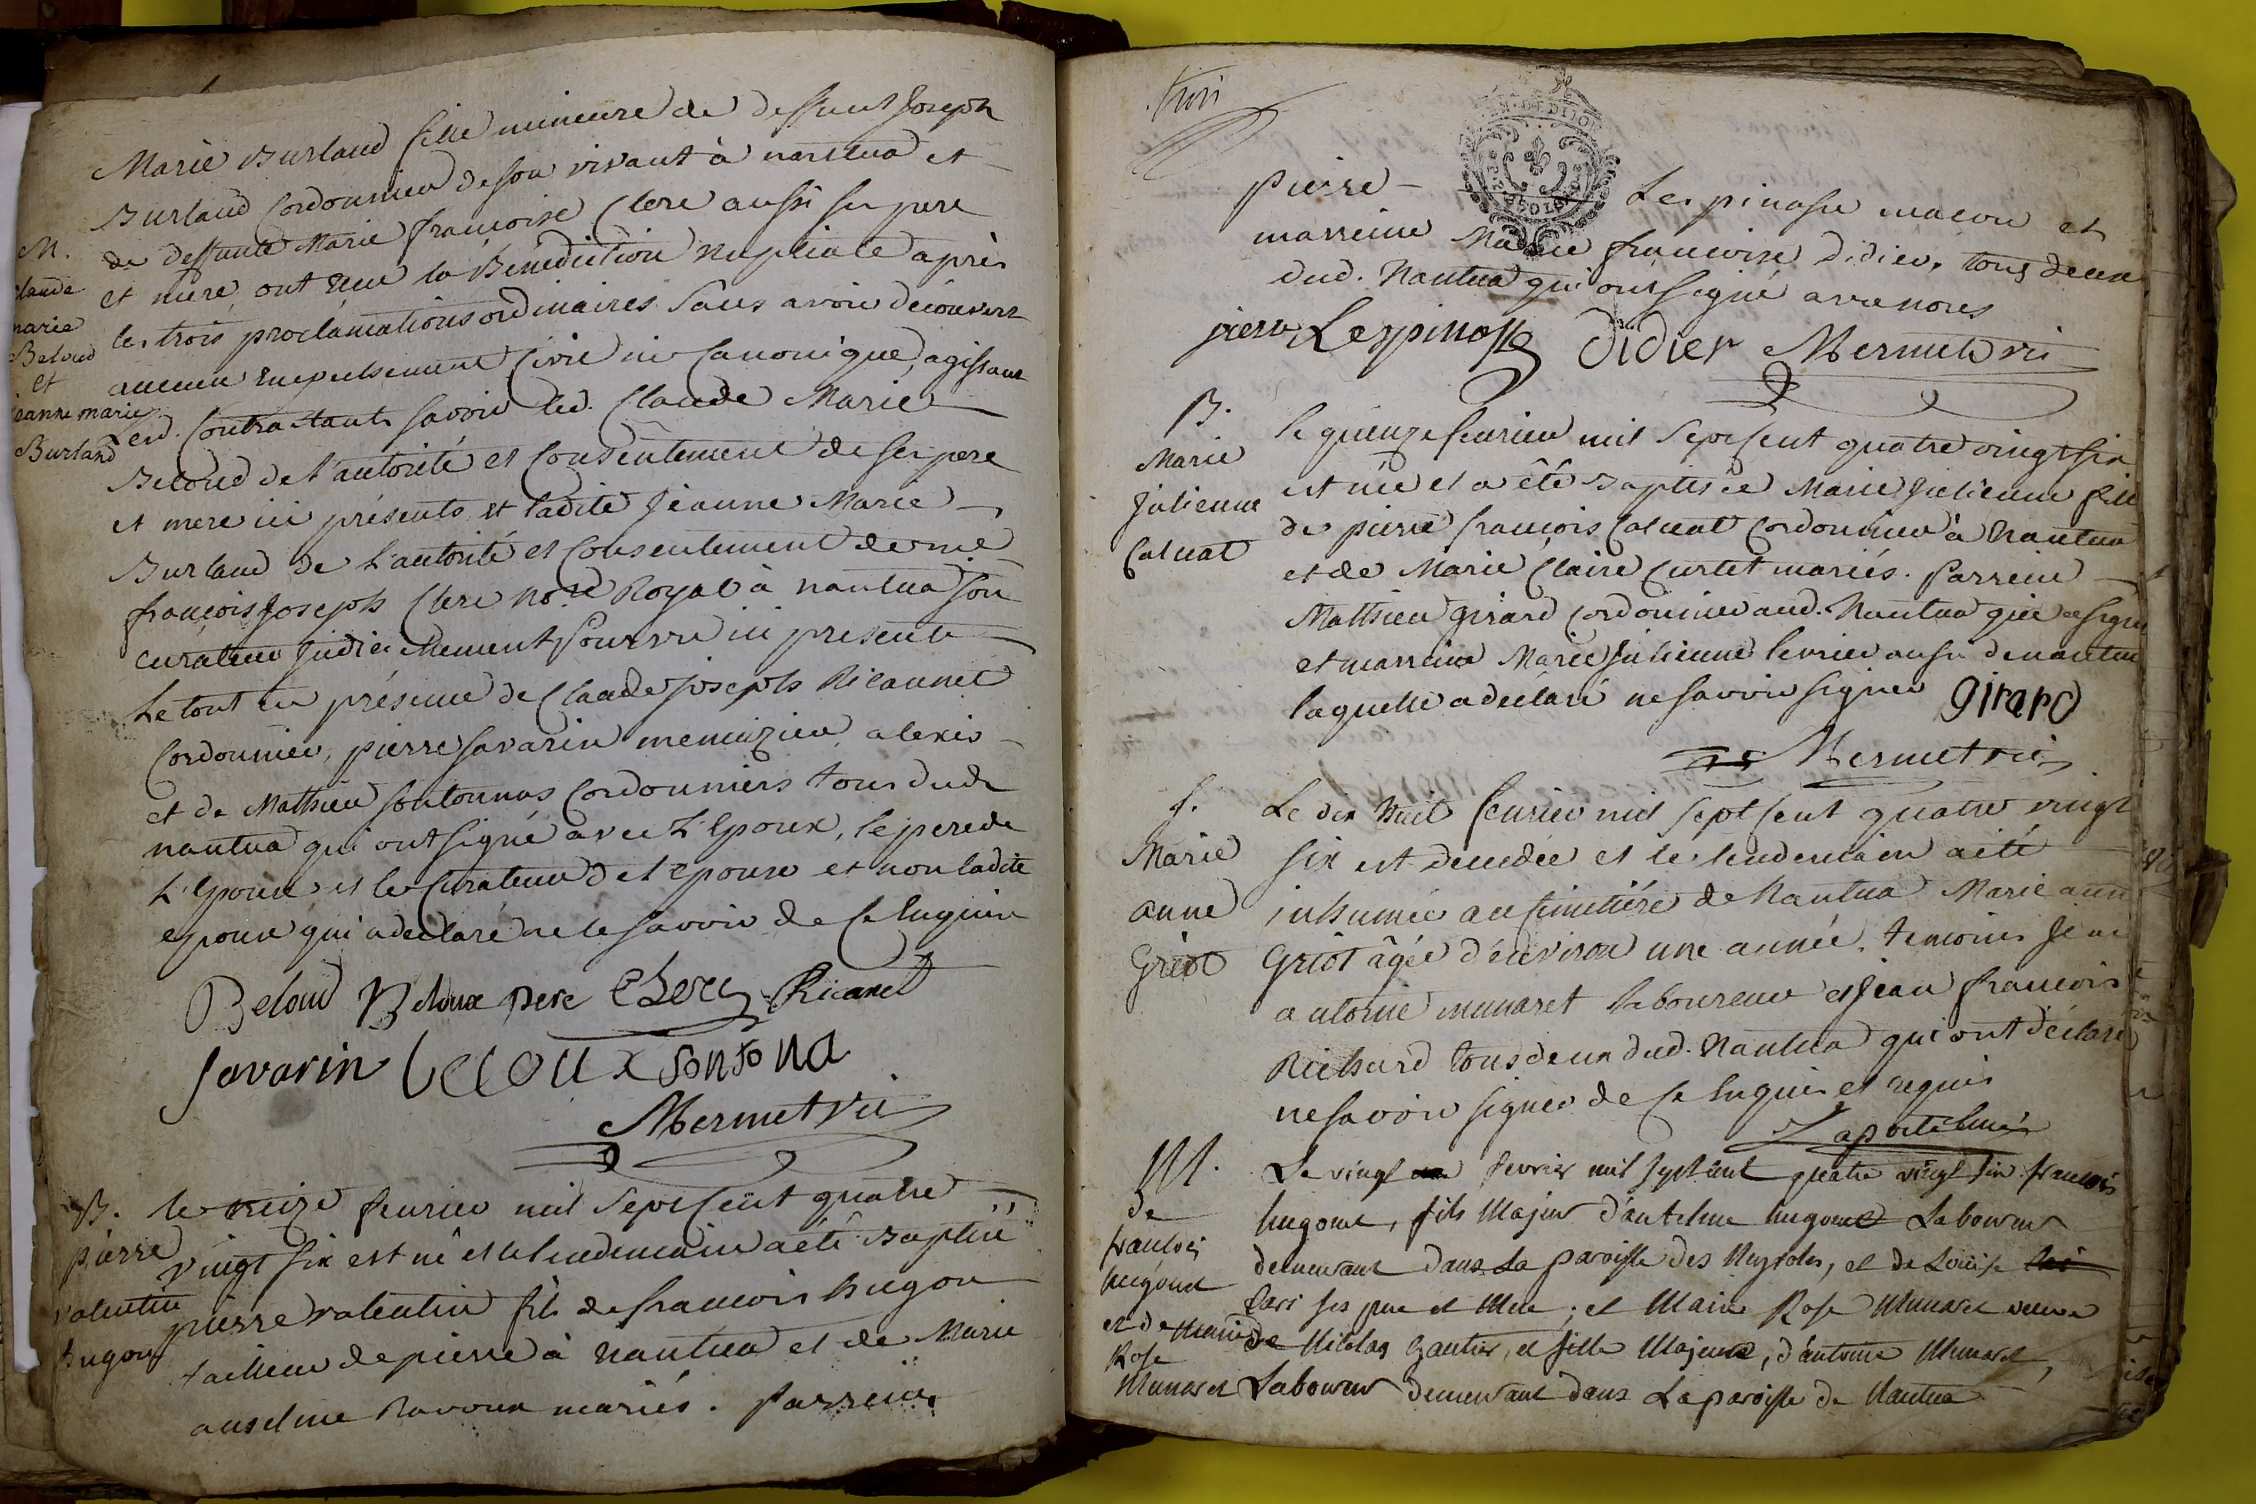 Marie Burland fille mineure de deffunt Joseph
Burland Cordonnier de son vivant à nantua et
de deffunte Marie francoise Clerc aussi ses pere
et mere, ont reçu la Bénédiction Nuptiale après
les trois proclamations ordinaires sans avoir découvert
aucun empechement Civil ni Canonique, agissant
lesd. Contractants savoir led. Claude Marie
Beloud de l'autorité et Consentement de ses pere
et mere ici présents et ladite Jeanne Marie
Burland de l'autorité et Consentement de me
françois Joseph Clerc no.re Royal à nantua son
curateur judiciellement pourvu ici présent
Le tout en présence de Claude Joseph Ricannet
Cordonnier, pierre savarin menuizier, alexis
et de Mathieu sontonnas Cordonniers tous dud.
nantua qui ont signé avec L'Epoux, le pere de
L'Epoux et le Curateur de l'epouse et non ladite
epouse qui a declaré ne le savoir de Ce Enquise
M.
Claude
marie
Beloud
et
jeanne marie
Burland
Beloud Beloux pere Clerc Ricanet
Savarin Beloux sontona
Mermet vic
B.
pierre
valentin
hugon
le treize fevrier mil sept Cent quatre
vingt six est né et le lendemain a été Baptisé
pierre valentin fils de francois hugon
tailleur de pierre à nantua et de Marie
anselme Ravoux mariés. Parrein
trois
pierre Lespinasse macon et
marreine Marie francoise Didier, tous deux
dud. Nantua qui ont signé avec nous
pierre Lespinasse Didier Mermet vic
B.
Marie
Julienne
Caluat
le quinze fevrier mil sept Cent quatre vingt six
est née et a été Baptisée Marie Julienne fille
de pierre francois Caluat Cordonnier à Nantua
et de Marie Claire Curtet mariés. Parrein
Matthieu girard Cordonnier aud. Nantua qui a signé
et marreine Marie Julienne levrier aussi de nantua
laquelle a déclaré ne savoir signer Girard
Mermet vic
f.
Marie
anne
Griot
Le dix huit fevrier mil sept Cent quatre vingt
six est decedée et le lendemain a été
inhumée au Cimetière de Nantua Marie anne
Griot âgée d'environ une année. temoins Jean
antoine munaret laboureur et Jean francois
Richard tous deux dud. Nantua qui ont déclaré
ne savoir signer de Ce Enquis et requis
Laporte
M.
de
francois
hugonet
et de Marie
Rose
Munaret
Le vingt fevrier mil sept cent quatre vingt six francois
hugonet, fils Majeur d'antelme hugonet Laboureur
demeurant dans La paroisse des Neyroles, et de Louise
ses pere et Mere; et Marie Rose Munaret veuve
de Nicolas Gautier, et fille Majeure, d'antoine Munaret,
Laboureur demeurant dans La paroisse de Nantua